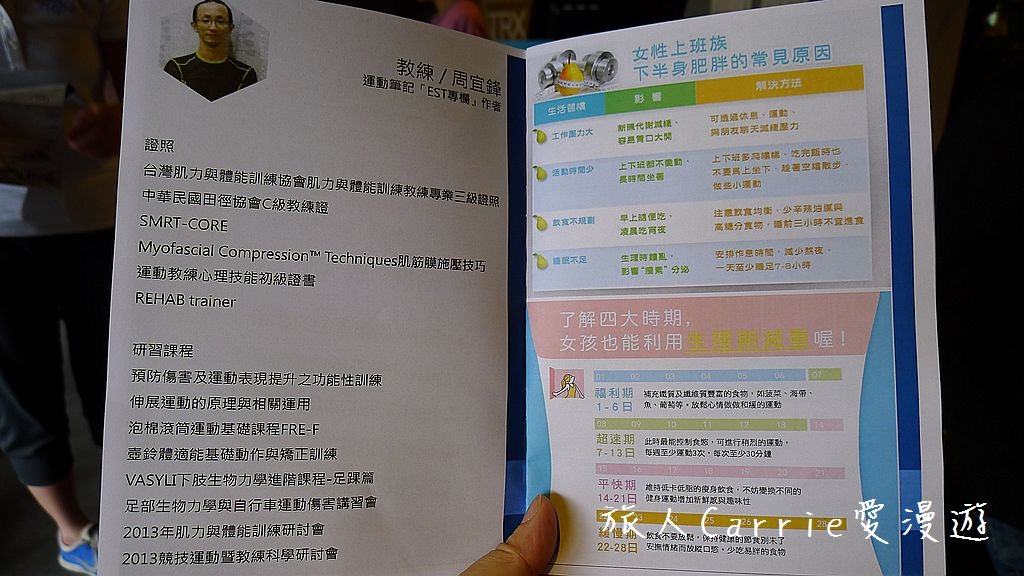 TRX
教練 / 周宜鋒
運動筆記「EST專欄」作者
證照
台灣肌力與體能訓練協會肌力與體能訓練教練專業三級證照
中華民國田徑協會C級教練證
SMRT-CORE
Myofascial Compression™ Techniques肌筋膜施壓技巧
運動教練心理技能初級證書
REHAB trainer
研習課程
預防傷害及運動表現提升之功能性訓練
伸展運動的原理與相關運用
泡棉滾筒運動基礎課程FRE-F
壺鈴體適能基礎動作與矯正訓練
VASYLI下肢生物力學進階課程-足踝篇
足部生物力學與自行車運動傷害講習會
2013年肌力與體能訓練研討會
2013競技運動暨教練科學研討會
女性上班族
下半身肥胖的常見原因
生活習慣 影響 解決方法
工作壓力大
新陳代謝減緩、
容易胃口大開
可透過休息，運動、
與朋友聊天減緩壓力
活動時間少
上下班都不愛動、
長時間坐著
上下班多爬樓梯、吃完飯時也
不要馬上坐下，趁著空檔散步、
做些小運動
飲食不規劃
早上隨便吃、
凌晨吃宵夜
注意飲食均衡，少辛辣油膩與
高糖分食物，睡前三小時不宜進食
睡眠不足
生理時鐘亂，
影響"瘦素"分泌
安排作息時間，減少熬夜，
一天至少睡足7-8小時
了解四大時期，
女孩也能利用生理期減重喔！
01 02 03 04 05 06 07
福利期
1-6日
補充鐵質及纖維質豐富的食物，如菠菜、海帶、
魚、葡萄等。放鬆心情做做和緩的運動
08 09 10 11 12 13 14
超速期
7-13日
此時最能控制食慾，可進行稍烈的運動。
每週至少運動3次，每次至少30分鐘
15 16 17 18 19 20 21
平快期
14-21日
維持低卡低脂的瘦身飲食，不妨變換不同的
健身運動增加新鮮感與趣味性
緩慢期
22-28日
飲食不要放鬆，保持健康的節食別未了
安撫情緒而放縱口慾，少吃易胖的食物
旅人Carrie愛漫遊